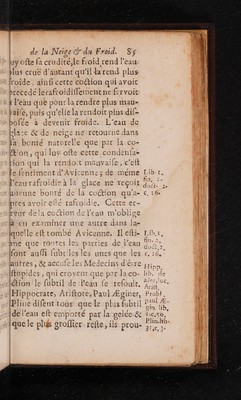 de la Neige & du Froid. 85
uy oste sa crudité, le froid rend l'eau
plus cruë d'autant qu'il la rend plus
froide. ainsi cette coction qui avoit
precedé le rafroidissement ne servoit
à l'eau que pour la rendre plus mau-
vaise, puis qu'elle la rendoit plus dis-
posée à devenir froide. L'eau de
glace & de neige ne retourne dans
sa bonté naturelle que par la co-
ction, qui luy oste cette condensa-
tion qui la rendoit mauvaise, c'est
le sentiment d'Avicenne; de même
l'eau rafroidie à la glace ne reçoit
aucune bonté de la coction qu'a-
prés avoir esté rafroidie. Cette er-
reur de la coction de l'eau m'oblige
à en examiner une autre dans la-
quelle est tombé Avicenne. Il esti-
me que toutes les parties de l'eau
sont aussi subtiles les unes que les
autres, & accuse les Medecins d'être
stupides, qui croyent que par la co-
ction le subtil de l'eau se resout.
Hippocrate, Aristote, Paul Æginer,
Pline disent tous que le plus subtil
de l'eau est emporté par la gelée &
que le plus grossier reste, ils prou-
Lib. 1.
fin. 2.
doct. 2.
c. 16.
Lib. 1.
fin. 2.
doct. 2.
c. 16.
Hipp.
lib. de
aëre, loc.
Arist.
Probl.
paul Æ-
gin. lib.
Plin. lib.